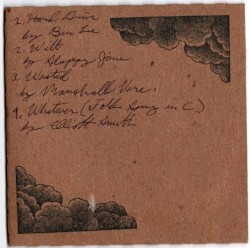 1. Hand Driver
by Ben Lee
2. Wilt
by Sloppy Jane
3. Wasted
by Marshall Vore
4. Whatever (Folk Song in C)
by Elliott Smith